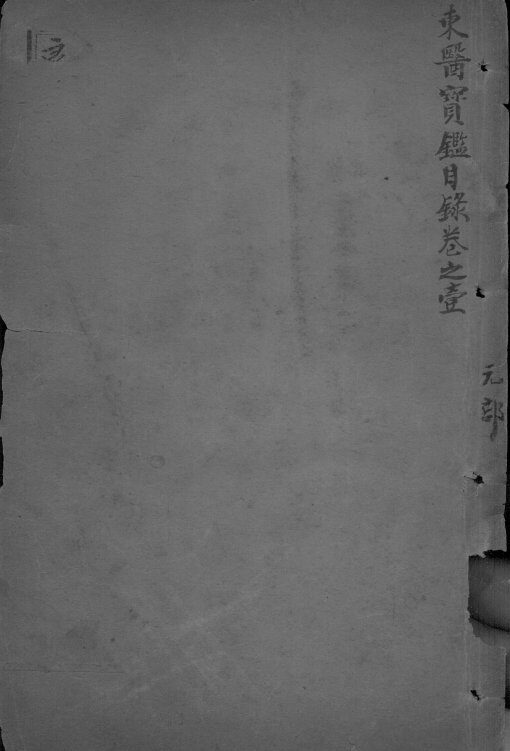 東醫寶鑑目錄卷之壹
元部